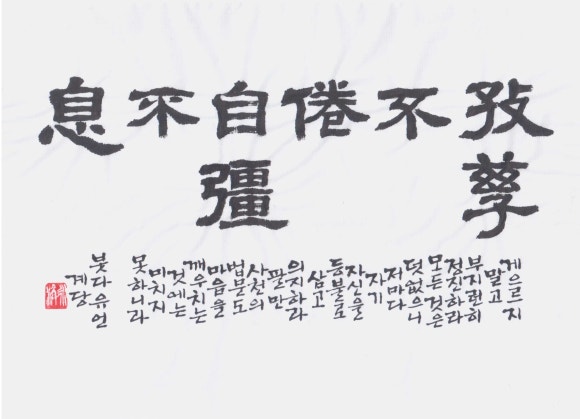 孜孳
不
倦
自彊
不
息
게으르지
말고
부지런히
정진하라
모든 것은
덧없으니
저마다
자기
자신을
등불로
삼고
의지하라
팔만
사천의
법문도
마음을
깨우치는
것에는
미치지
못하니라
붓다 유언
계당